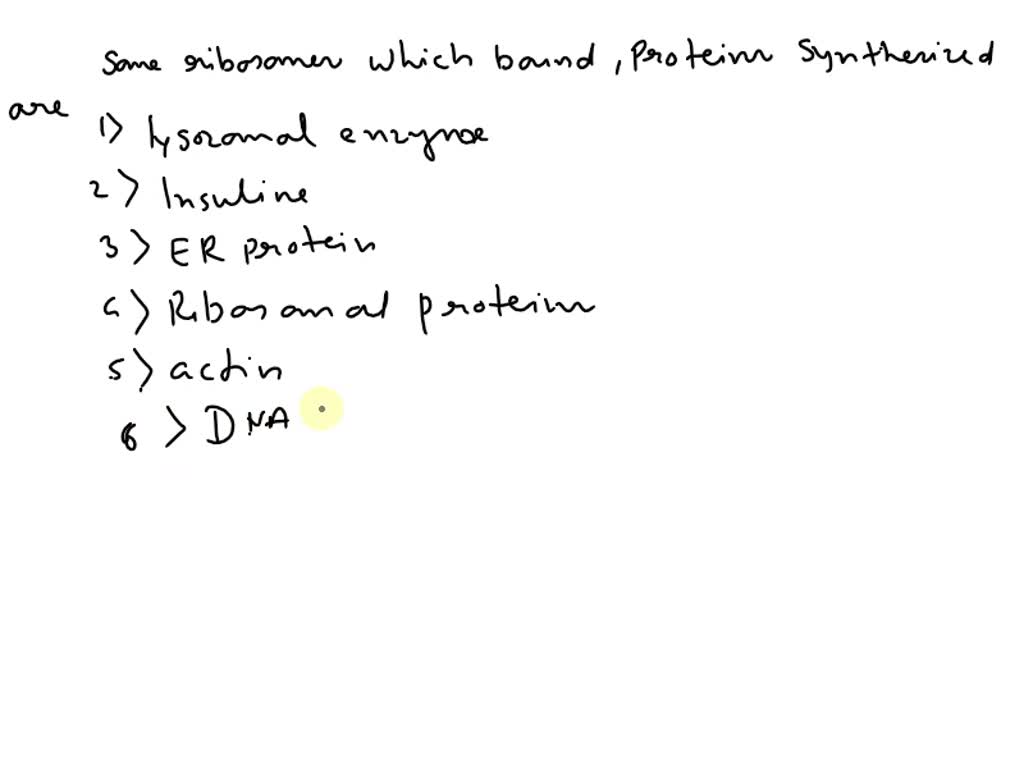 Some ribosomes which bound, Proteins Synthesized
are
1> Lysozomal enzyme
2> Insuline
3> ER protein
4> Ribosomal proteins
5> actin
6> DNA